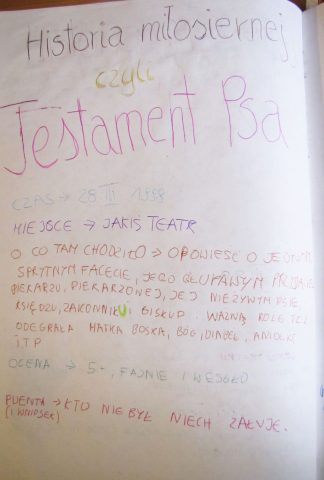 Historia miłosiernej
czyli
Testament Psa
CZAS → 28 III 1998
MIEJSCE → JAKIŚ TEATR
O CO TAM CHODZIŁO → OPOWIEŚĆ O JEDNYM
SPRYTNYM FACECIE, JEGO GŁUPAWYM
PIEKARZU, PIEKARZOWEJ, JEJ NIEŻYWYM PSIE,
KSIĘDZU, ZAKONNIKU I BISKUP. WAŻNĄ ROLĘ TEŻ
ODEGRAŁA MATKA BOSKA, BÓG, DIABEŁ, ANIOŁKI
ITP
OCENA → 5+, FAJNIE I WESOŁO
PUENTA → KTO NIE BYŁ NIECH ŻAŁUJE.
(I WNIOSEK)